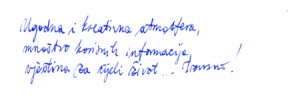 Ugodna i kreativna atmosfera,
mnoštvo korisnih informacija,
vještina za cijeli život...!